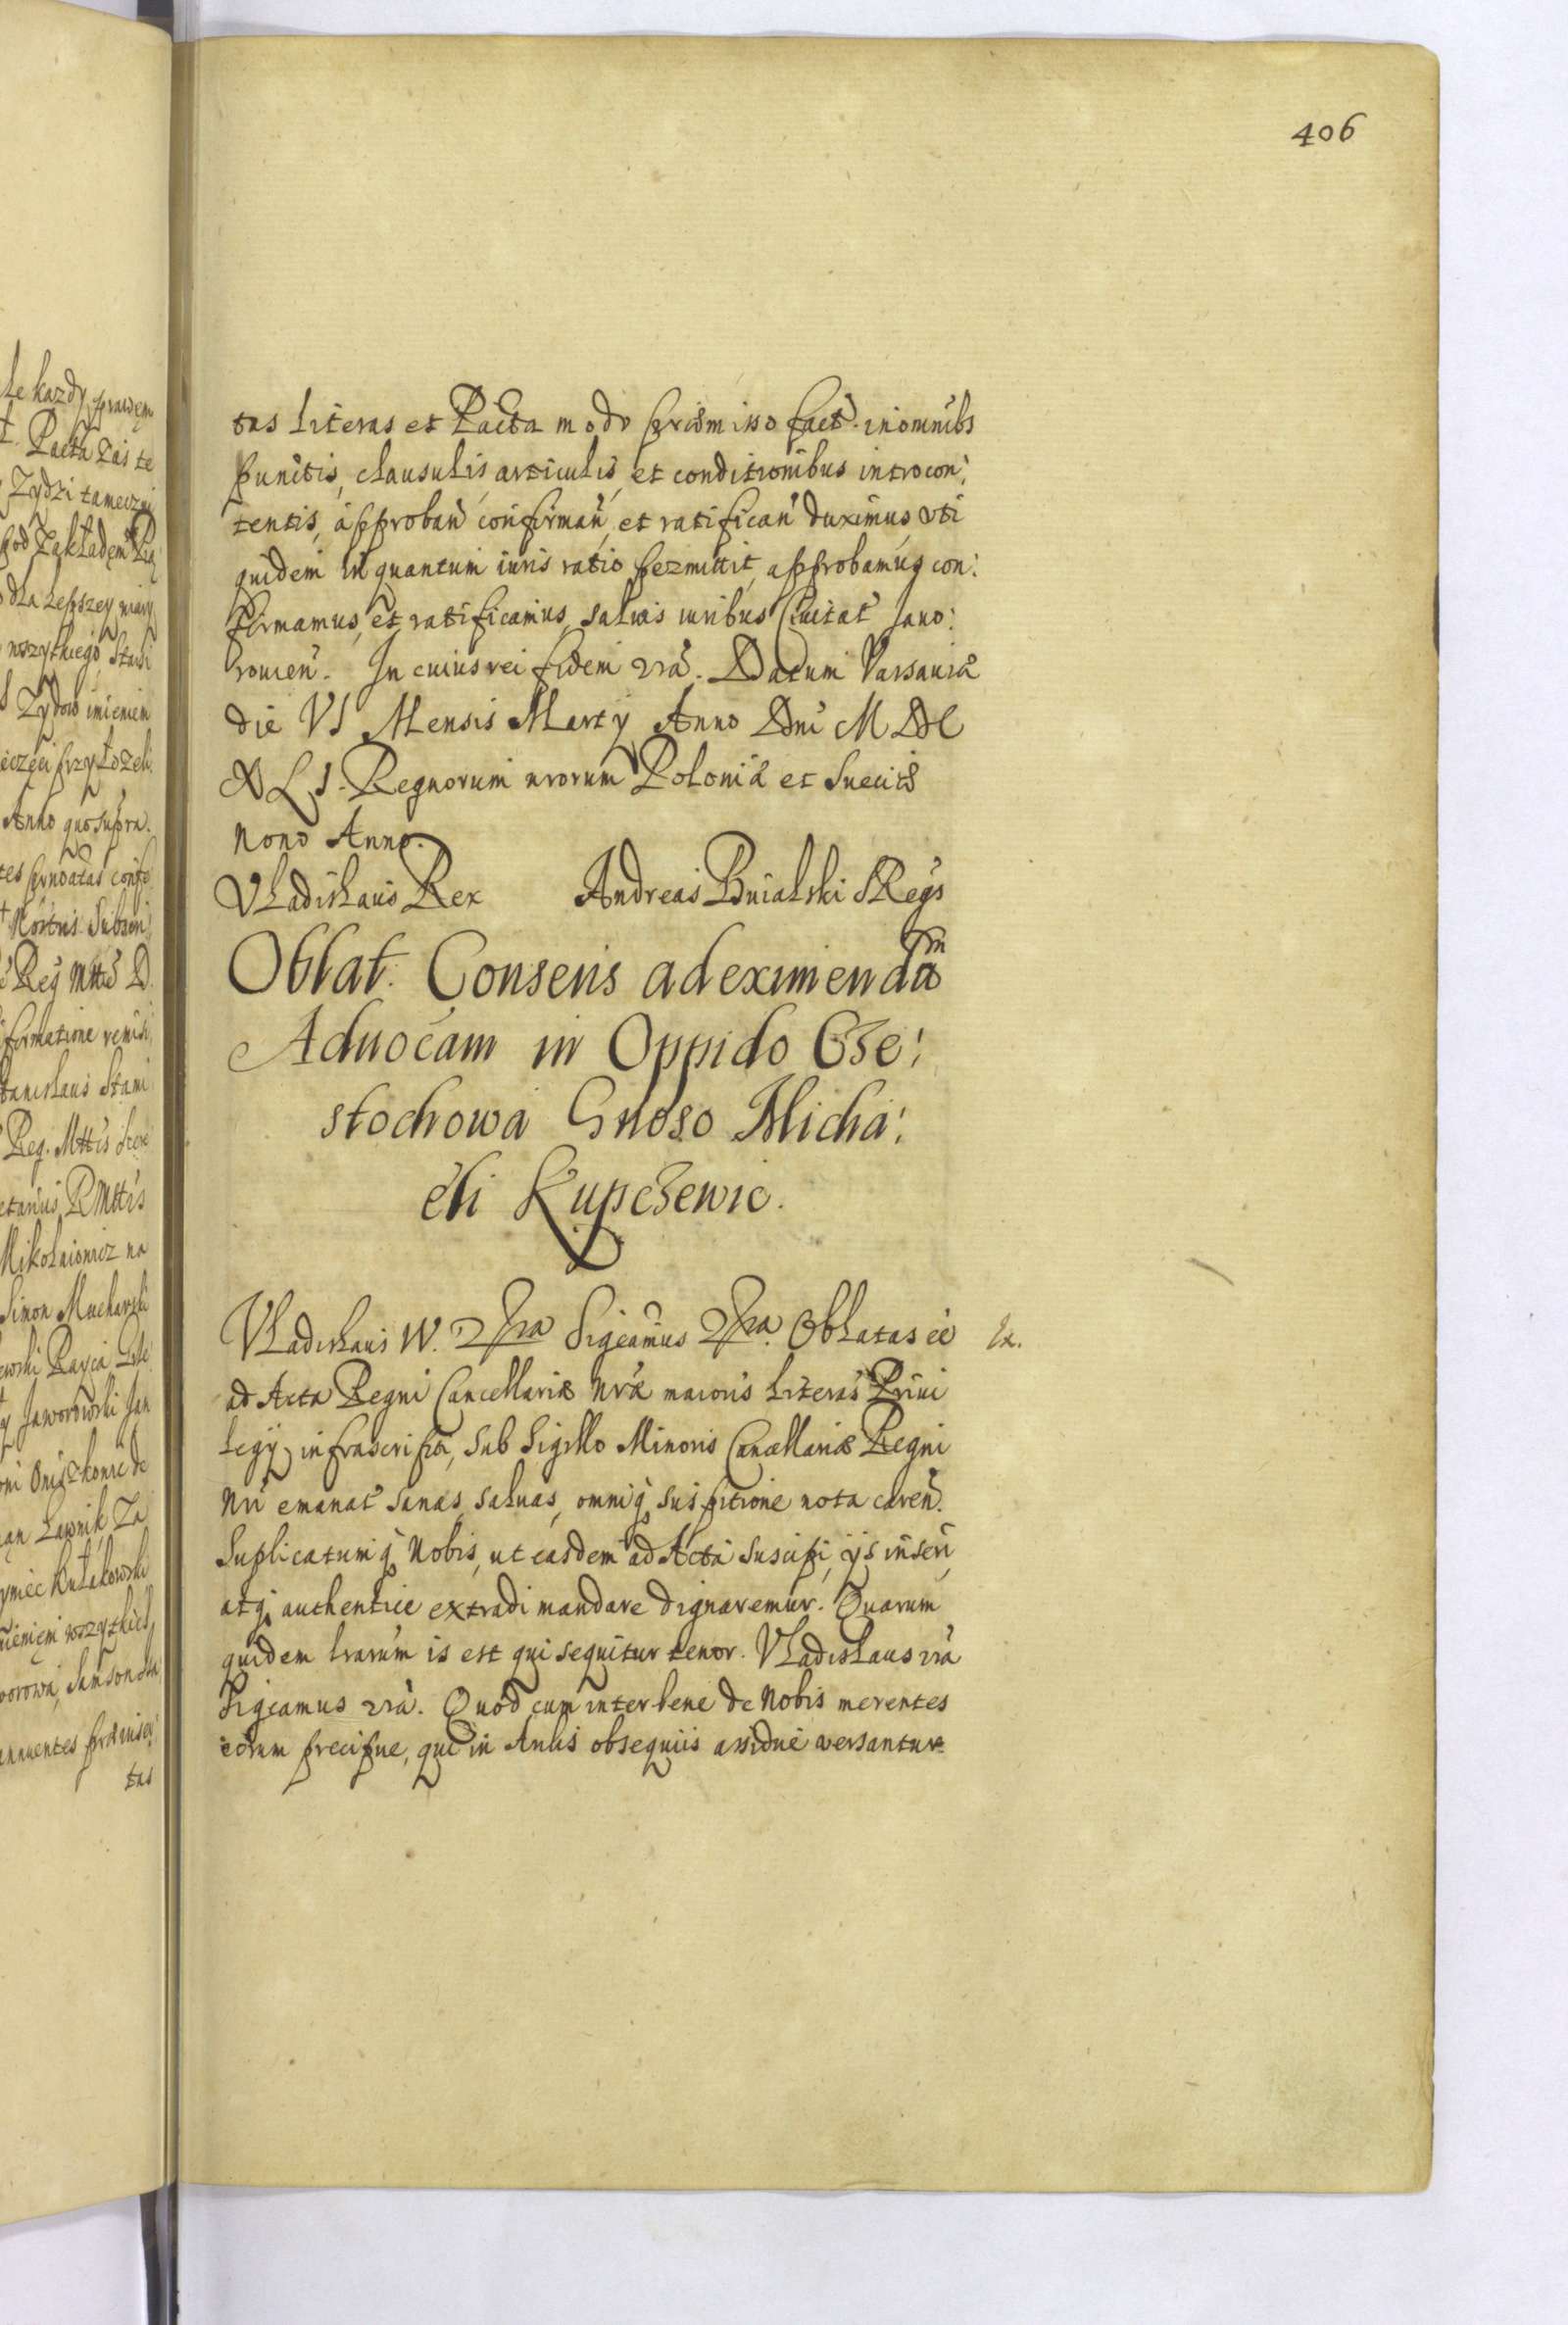 406
tas Literas et Pacta modo præmisso fact. in omnibs
punctis, clausulis articulis, et conditionibus introcon:
tentis, approban confirman, et ratifican duximus vti
quidem in quantum iuris ratio permittit, approbamus con:
firmamus, et ratificamus, saluis iuribus Ciuitat Jauo:
rouien. In cuius rei fidem rrã. Datum Varsauiæ
die VI Mensis Martÿ Anno Dni MDC
XLI. Regnorum nrorum Poloniæ et Sueciæ
Nono Anno.
Vladislaus Rex Andreas Bnialski SReg's
Oblat. Consens ad eximendam
Aduocãam in Oppido Cze:
stochowa Gnoso Micha:
eli Kupczewic.
Vladislaus IV. Dra Sigcamus Dra. Oblatas eê Ex.
ad Acta Regni Cancellariæ Nræ maioris Literas Priui
Legÿ infrascripta, Sub Sigillo Minoris Cancellariæ Regni
Nri emanat Sanas, Saluas, omniq suspitione nota caren.
Suplicatumq Nobis, ut easdem ad Acta suscipi, ijs inseri,
atq authentice extradi mandare dignaremur. Quarum
quidem lrarum is est qui sequitur tenor. Vladislaus rrã
Sigcamus rrã. Quod cum inter bene de Nobis merentes
eorum precipue, qui in Aulis obsequiis assidue versantur
le kazdy prawem
Pacta Zas te
Zydzi tameczni
pod Zakładem
dla Lepszey wiary
wszytkiego Starsi
Zydow imieniem
ieczęci przyłozeli.
Anno quo supra.
Reg. Mttis
formatione remisi
tanislaus Stani
Reg. Mttis Secr
etarius RMttis
Mikołaiowicz na
Simon Mucharski
Jaworowski Jan
Ławnik, Za
Kułakowski
nieniem wszytkich
annuentes præinser
tas